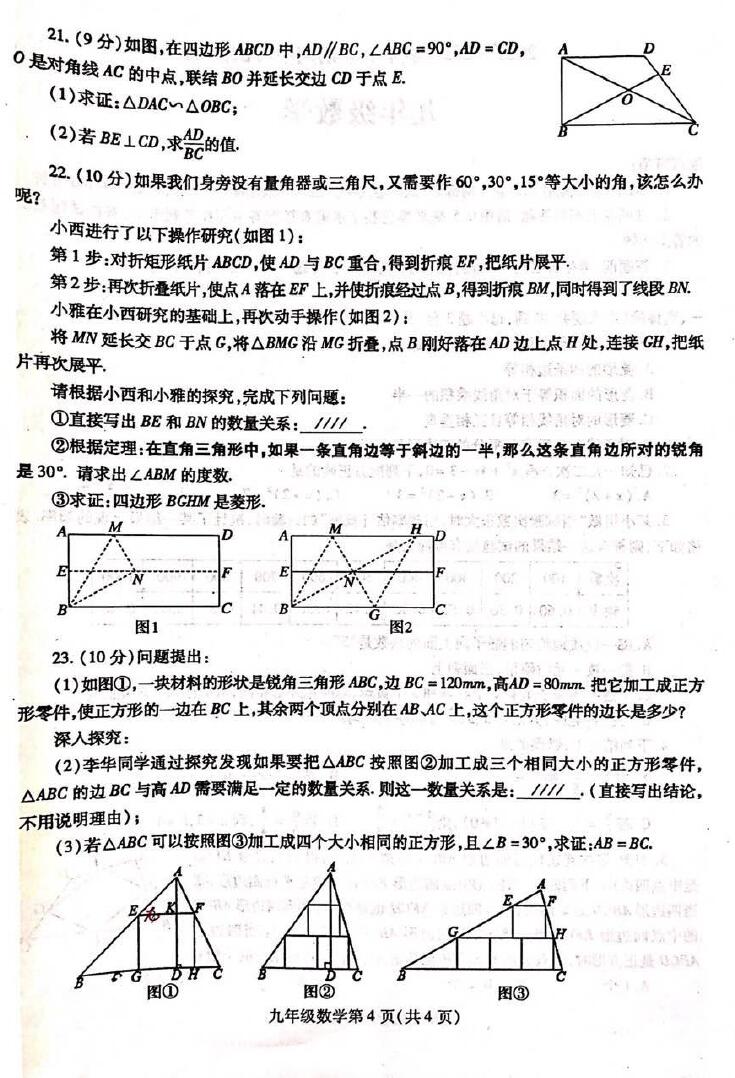 21. (9分)如图,在四边形ABCD中,AD∥BC,∠ABC=90°,AD=CD,
O是对角线AC的中点,联结BO并延长交边CD于点E.
(1)求证:△DAC∽△OBC;
(2)若BE⊥CD,求AD/BC的值.
A
D
E
O
B
C
22. (10分)如果我们身旁没有量角器或三角尺,又需要作60°,30°,15°等大小的角,该怎么办
呢?
小西进行了以下操作研究(如图1):
第1步:对折矩形纸片ABCD,使AD与BC重合,得到折痕EF,把纸片展平.
第2步:再次折叠纸片,使点A落在EF上,并使折痕经过点B,得到折痕BM,同时得到了线段BN.
小雅在小西研究的基础上,再次动手操作(如图2):
将MN延长交BC于点G,将△BMG沿MG折叠,点B刚好落在AD边上点H处,连接GH,把纸
片再次展平.
请根据小西和小雅的探究,完成下列问题:
①直接写出BE和BN的数量关系: ////.
②根据定理:在直角三角形中,如果一条直角边等于斜边的一半,那么这条直角边所对的锐角
是30°. 请求出∠ABM的度数.
③求证:四边形BGHM是菱形.
A M D
E N F
B C
图1
A M H D
E N F
B G C
图2
23. (10分)问题提出:
(1)如图①,一块材料的形状是锐角三角形ABC,边BC=120mm,高AD=80mm. 把它加工成正方
形零件,使正方形的一边在BC上,其余两个顶点分别在AB、AC上,这个正方形零件的边长是多少?
深入探究:
(2)李华同学通过探究发现如果要把△ABC按照图②加工成三个相同大小的正方形零件,
△ABC的边BC与高AD需要满足一定的数量关系. 则这一数量关系是: ////.(直接写出结论,
不用说明理由);
(3)若△ABC可以按照图③加工成四个大小相同的正方形,且∠B=30°,求证:AB=BC.
A
E K F
B G D H C
图①
A
B D C
图②
A
E F
G H
B C
图③
九年级数学第4页(共4页)